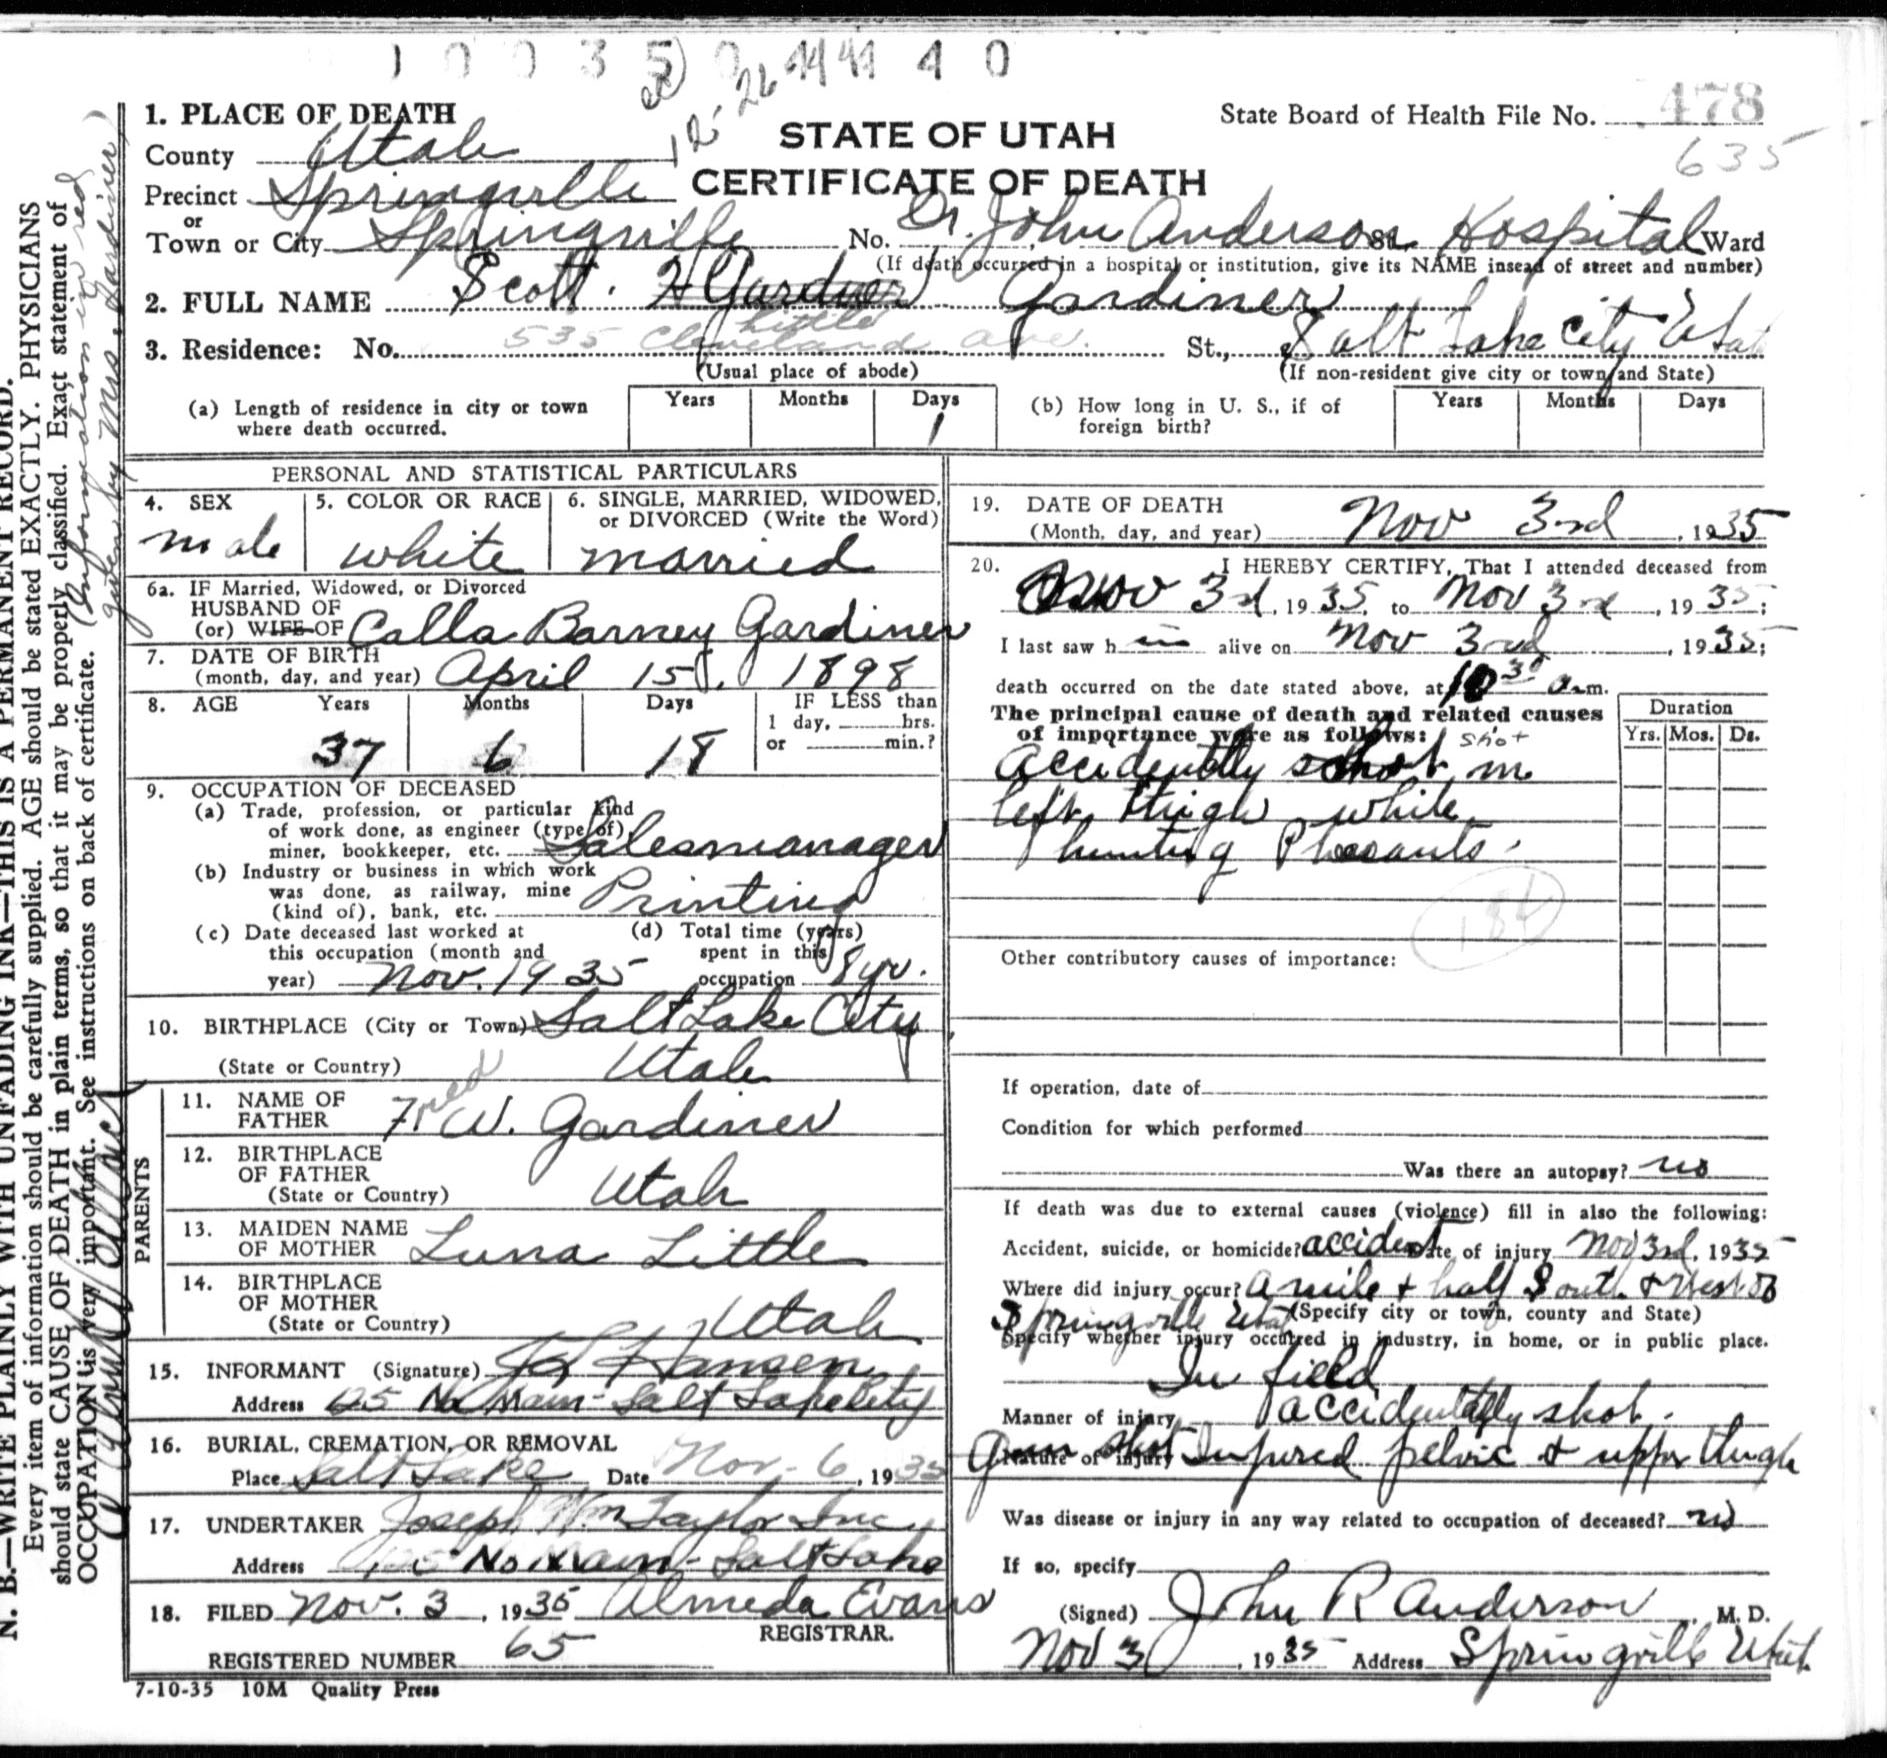 1 0 0 3 5 0 4 4 4 0
12-26
1. PLACE OF DEATH
State Board of Health File No. 478
635
STATE OF UTAH
CERTIFICATE OF DEATH
County Utah
Precinct Springville
or
Town or City Springville No. Dr. John Anderson St. Hospital Ward
(If death occurred in a hospital or institution, give its NAME insead of street and number)
2. FULL NAME Scott. H Gardner Gardiner
Little
3. Residence: No. 535 Cleveland Ave. St., Salt Lake City Utah
(Usual place of abode) (If non-resident give city or town and State)
(a) Length of residence in city or town where death occurred. Years Months Days 1
(b) How long in U. S., if of foreign birth? Years Months Days
PERSONAL AND STATISTICAL PARTICULARS
4. SEX 5. COLOR OR RACE 6. SINGLE, MARRIED, WIDOWED,
or DIVORCED (Write the Word)
male white married
6a. IF Married, Widowed, or Divorced
HUSBAND OF
(or) WIFE OF Calla Barney Gardiner
7. DATE OF BIRTH
(month, day, and year) April 15, 1898
8. AGE Years Months Days IF LESS than
1 day, hrs.
or min.?
37 6 18
9. OCCUPATION OF DECEASED
(a) Trade, profession, or particular kind
of work done, as engineer (type of)
miner, bookkeeper, etc. Salesmanager
(b) Industry or business in which work
was done, as railway, mine
(kind of), bank, etc. Printing
(c) Date deceased last worked at
this occupation (month and
year) Nov. 1935
(d) Total time (years)
spent in this
occupation 8 yr.
10. BIRTHPLACE (City or Town) Salt Lake City,
(State or Country) Utah
PARENTS
11. NAME OF
FATHER Fred W. Gardiner
12. BIRTHPLACE
OF FATHER
(State or Country) Utah
13. MAIDEN NAME
OF MOTHER Luna Little
14. BIRTHPLACE
OF MOTHER
(State or Country) Utah
15. INFORMANT (Signature) Hansen
Address 125 No Main - Salt Lake City
16. BURIAL, CREMATION, OR REMOVAL
Place Salt Lake Date Nov. 6, 1935
17. UNDERTAKER Joseph Wm Taylor Inc,
Address 125 No Main - Salt Lake
18. FILED Nov. 3, 1935 Almeda Evans
REGISTRAR.
REGISTERED NUMBER 65
7-10-35 10M Quality Press
19. DATE OF DEATH
(Month, day, and year) Nov 3rd, 1935
20. I HEREBY CERTIFY, That I attended deceased from
Nov 3rd, 1935, to Nov 3rd, 1935;
I last saw him alive on Nov 3rd, 1935;
death occurred on the date stated above, at 10 30 a.m.
The principal cause of death and related causes
of importance were as follows: shot
Duration
Yrs. Mos. Ds.
accidently shot in
left thigh while
hunting Pheasants.
184
Other contributory causes of importance:
If operation, date of
Condition for which performed
Was there an autopsy? no
If death was due to external causes (violence) fill in also the following:
Accident, suicide, or homicide? accident Date of injury Nov 3rd, 1935
Where did injury occur? A mile + half South + West of
Springville Utah (Specify city or town, county and State)
Specify whether injury occurred in industry, in home, or in public place.
In field
Manner of injury accidentally shot.
Nature of injury Gun shot Injured pelvic & upper thigh
Was disease or injury in any way related to occupation of deceased? no
If so, specify
(Signed) John R Anderson M. D.
Nov 3, 1935 Address Springville Utah
N. B.—WRITE PLAINLY WITH UNFADING INK—THIS IS A PERMANENT RECORD.
Every item of information should be carefully supplied. AGE should be stated EXACTLY. PHYSICIANS
should state CAUSE OF DEATH in plain terms, so that it may be properly classified. Exact statement of
OCCUPATION is very important. See instructions on back of certificate.
(Information in red
given by Mrs. Gardiner)